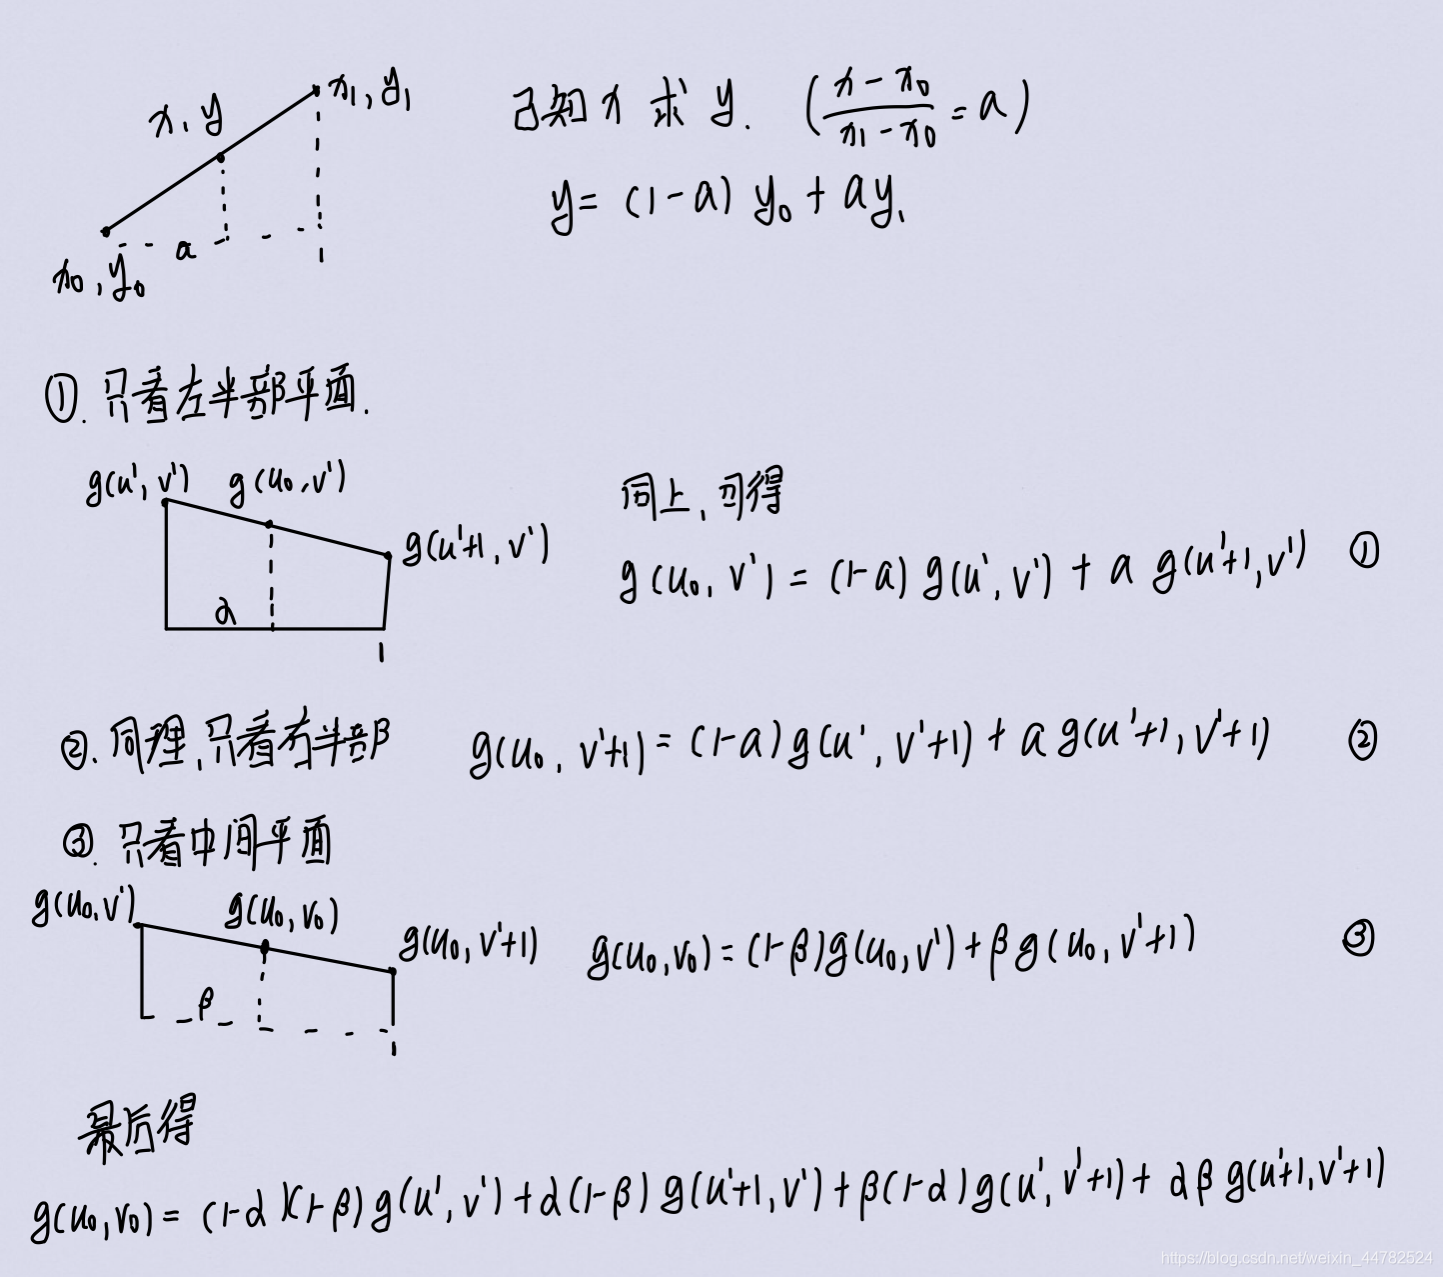 x, y
x₁, y₁
a
1
x₀, y₀
已知 x 求 y. ((x - x₀)/(x₁ - x₀) = a)
y = (1-a) y₀ + ay₁
①. 只看左半部平面.
g(u', v') g(u₀, v')
g(u'+1, v')
α
1
同上, 可得
g(u₀, v') = (1-a) g(u', v') + a g(u'+1, v') ①
②. 同理, 只看右半部 g(u₀, v'+1) = (1-a) g(u', v'+1) + a g(u'+1, v'+1) ②
③. 只看中间平面
g(u₀, v') g(u₀, v₀)
g(u₀, v'+1)
β
1
g(u₀, v₀) = (1-β) g(u₀, v') + β g(u₀, v'+1) ③
最后得
g(u₀, v₀) = (1-α)(1-β) g(u', v') + α(1-β) g(u'+1, v') + β(1-α) g(u', v'+1) + αβ g(u'+1, v'+1)
https://blog.csdn.net/weixin_44782524